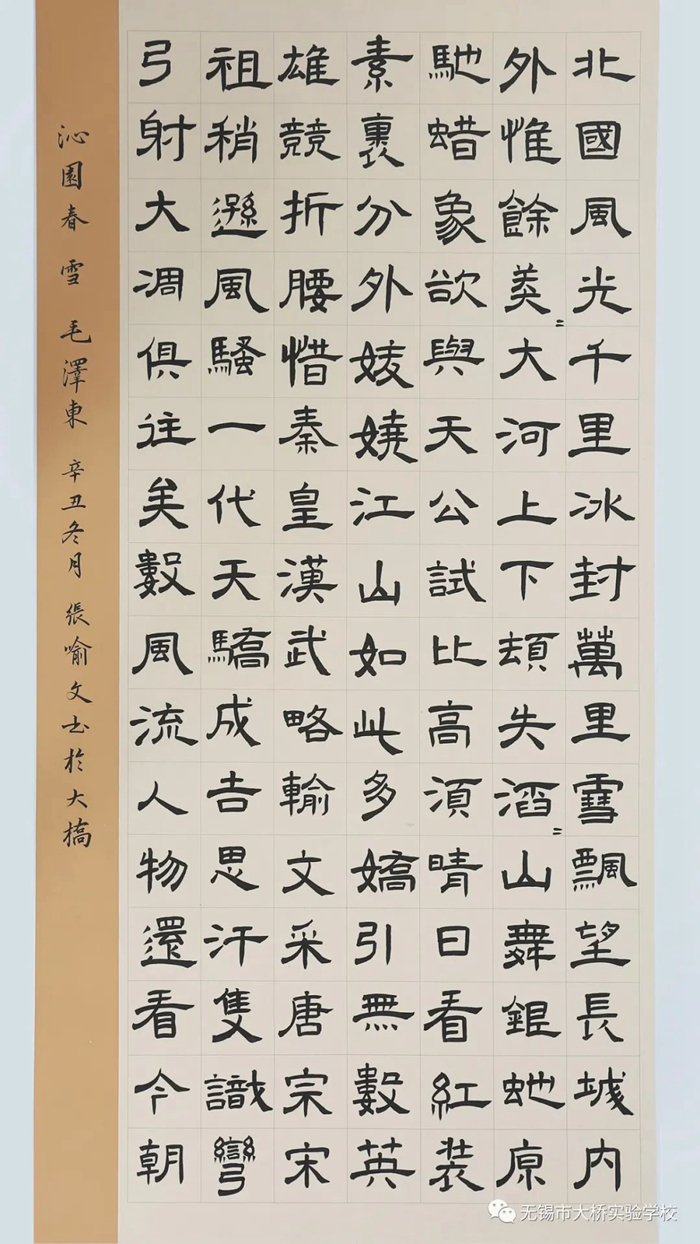 北國風光千里冰封萬里雪飄望長城内
外惟餘莽〻大河上下頓失滔〻山舞銀虵原
馳蜡象欲與天公試比高須晴日看紅装
素裹分外妖嬈江山如此多嬌引無數英
雄競折腰惜秦皇漢武略輸文采唐宗宋
祖稍遜風騷一代天驕成吉思汗隻識彎
弓射大凋俱往矣數風流人物還看今朝
沁園春 雪 毛澤東 辛丑冬月 張喻文书於大橋
无锡市大桥实验学校